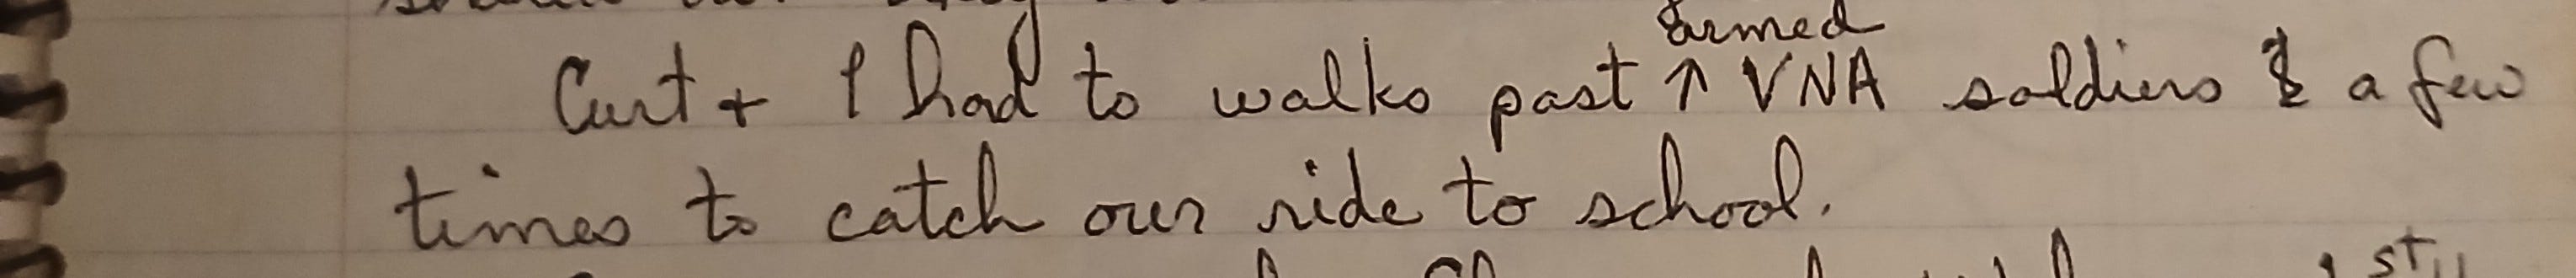 Curt + I had to walks past ↑ armed VNA soldiers & a few
times to catch our ride to school.